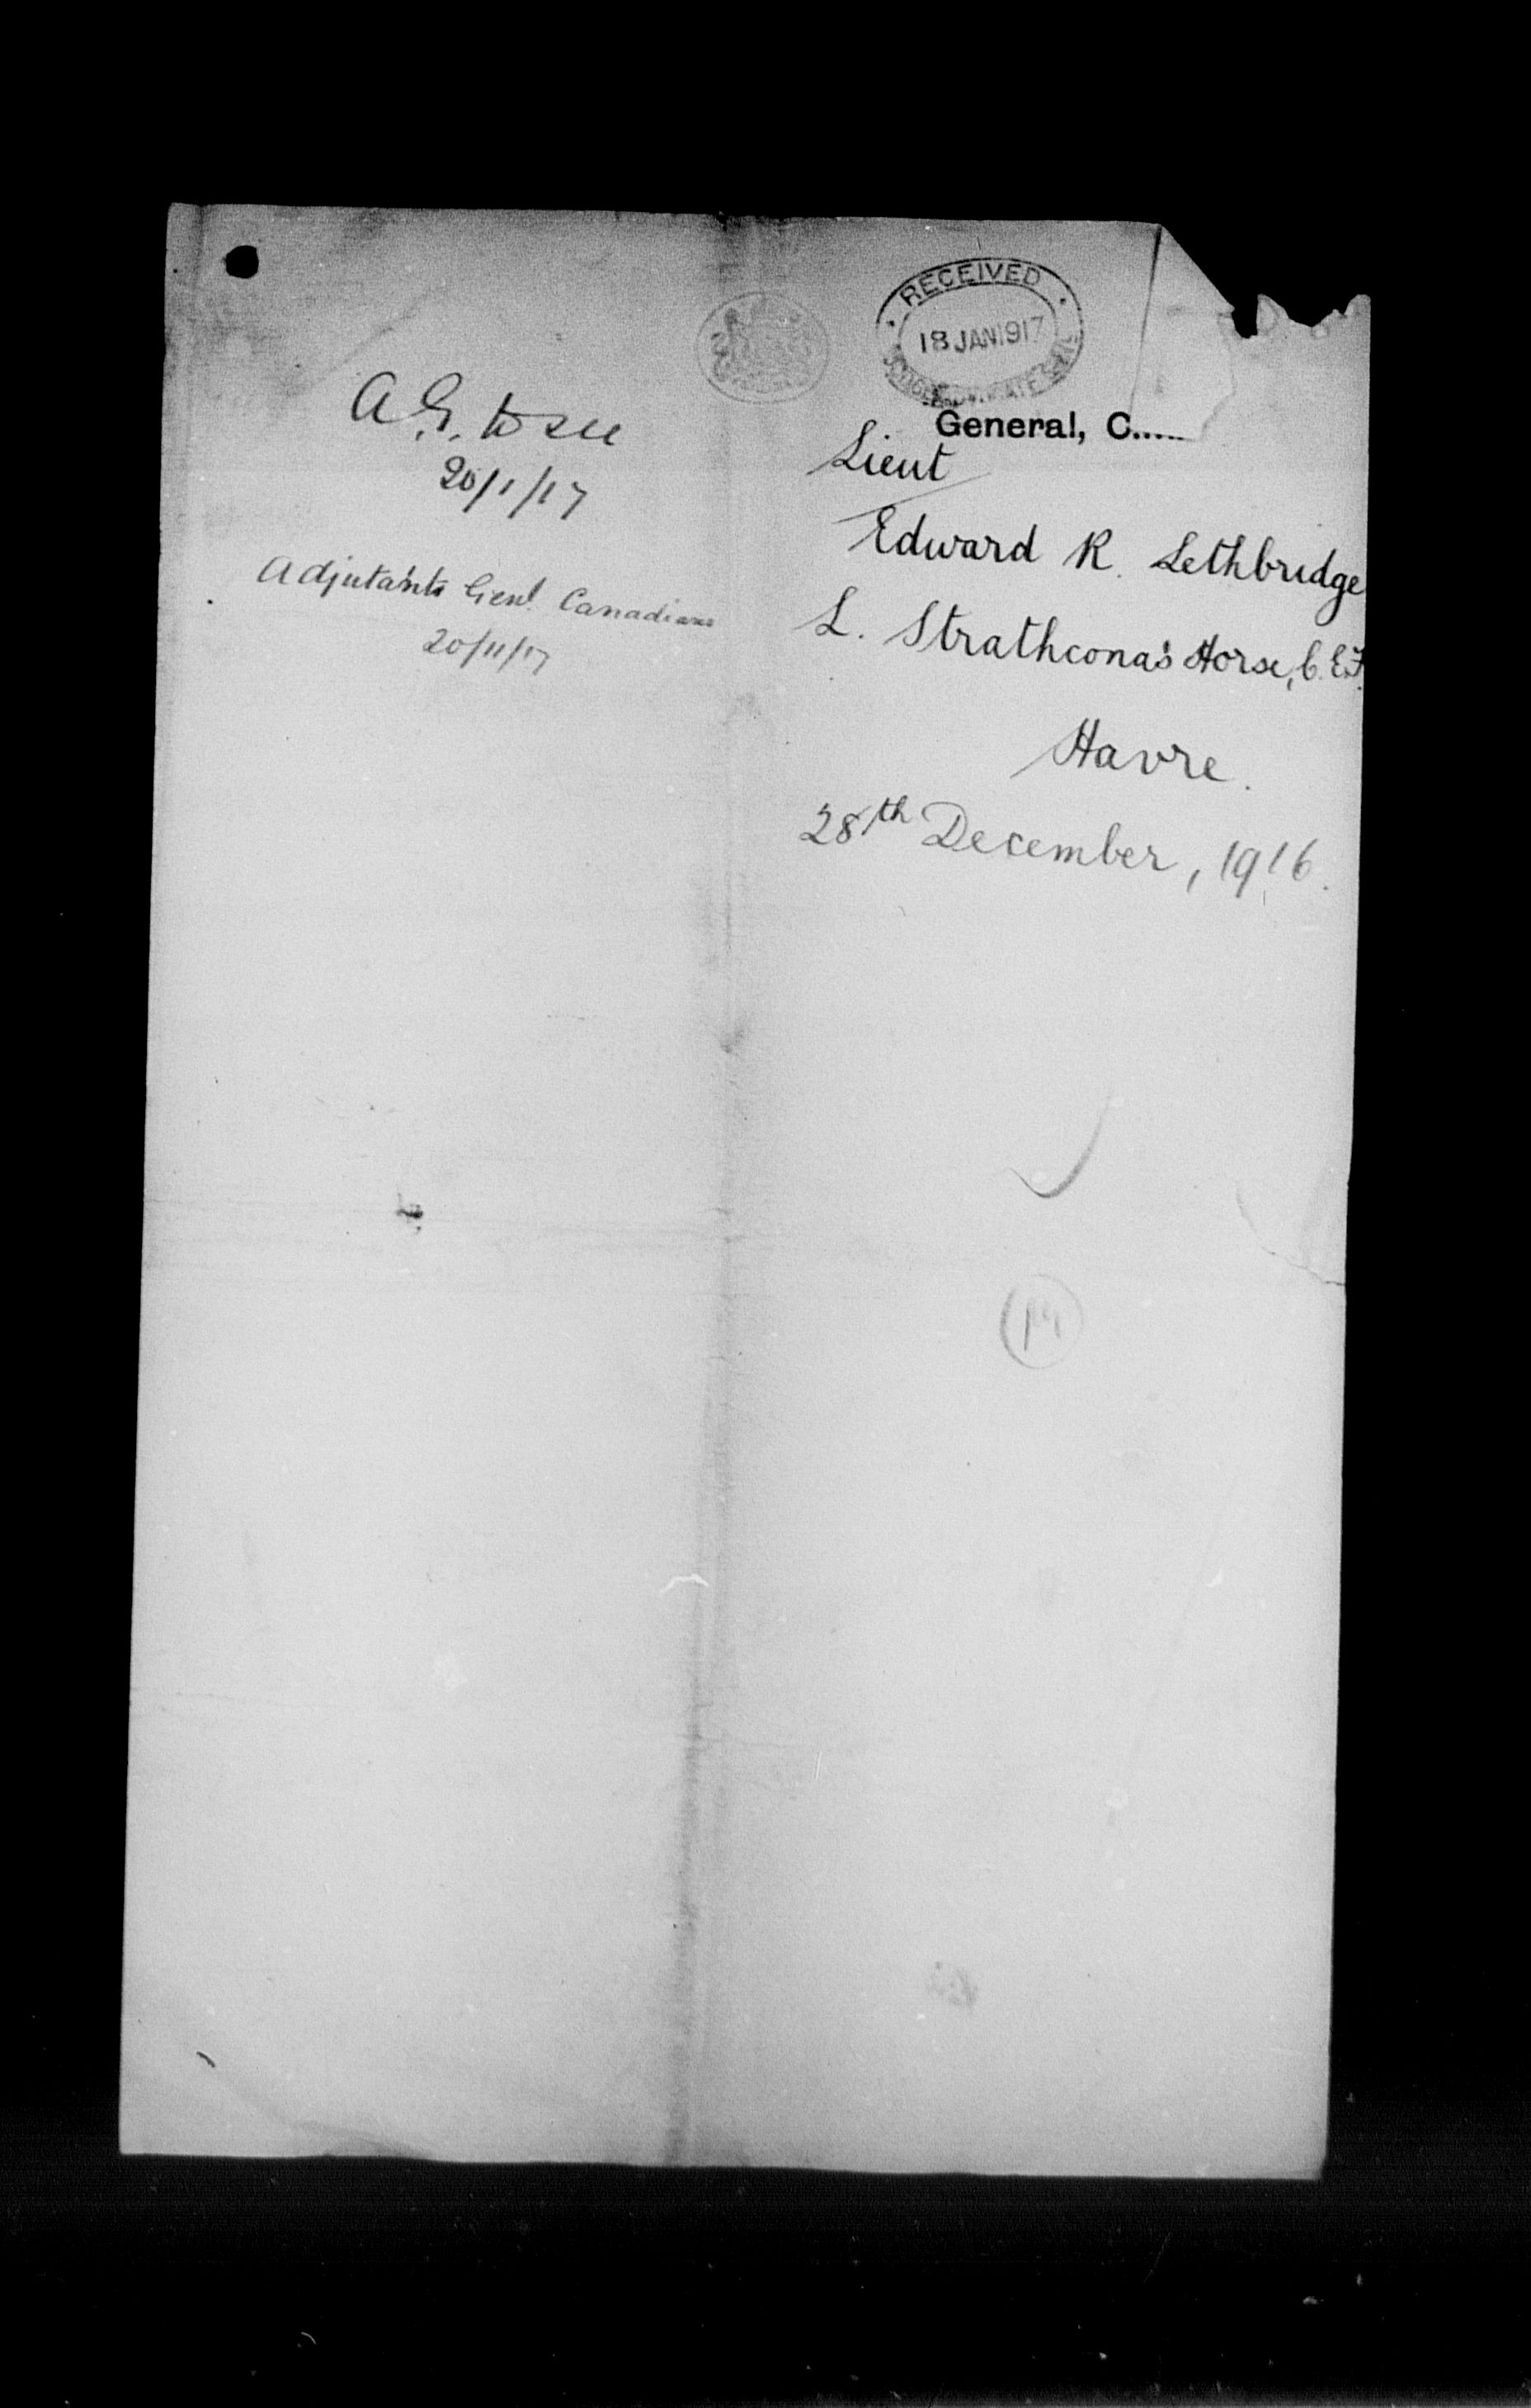 RECEIVED
18 JAN 1917
General, C.....
A.G. to see
20/1/17
Adjutants Genl. Canadians
20/1/17
Lieut
Edward R. Lethbridge
L. Strathcona's Horse, C.E.F.
Havre.
28th December, 1916.